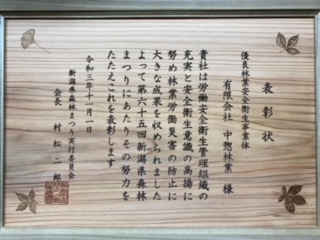 表彰状
優良林業安全衛生事業体
有限会社 中惣林業 様
貴社は労働安全衛生管理組織の
充実と安全衛生意識の高揚に
努め林業労働災害の防止に
大きな成果を収められました
よって第六十五回新潟県森林
まつりにあたりその努力を
たたえこれを表彰します
令和三年十一月一日
新潟県森林まつり実行委員会
会長 村松二郎